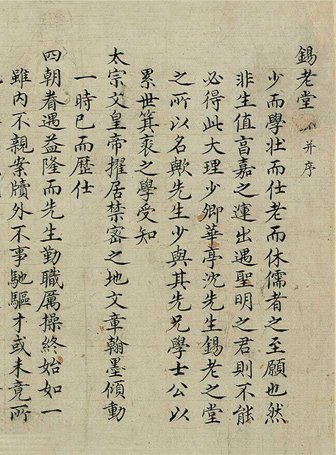 錫老堂 并序
少而學壯而仕老而休儒者之至願也然
非生值亨嘉之運出遇聖明之君則不能
必得此大理少卿華亭沈先生錫老之堂
之所以名歟先生少與其先兄學士公以
累世箕裘之學受知
太宗文皇帝擢居禁密之地文章翰墨傾動
一時已而歷仕
四朝眷遇益隆而先生勤職厲操終始如一
雖内不親案牘外不事馳驅才或未竟所